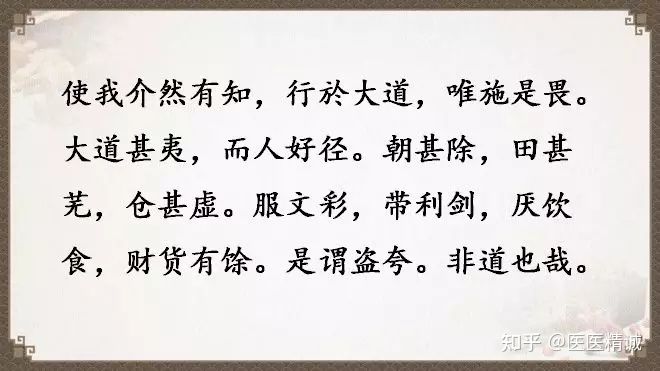 使我介然有知，行於大道，唯施是畏。
大道甚夷，而人好径。朝甚除，田甚
芜，仓甚虚。服文彩，带利剑，厌饮
食，财货有馀。是谓盗夸。非道也哉。
知乎 @医医精诚